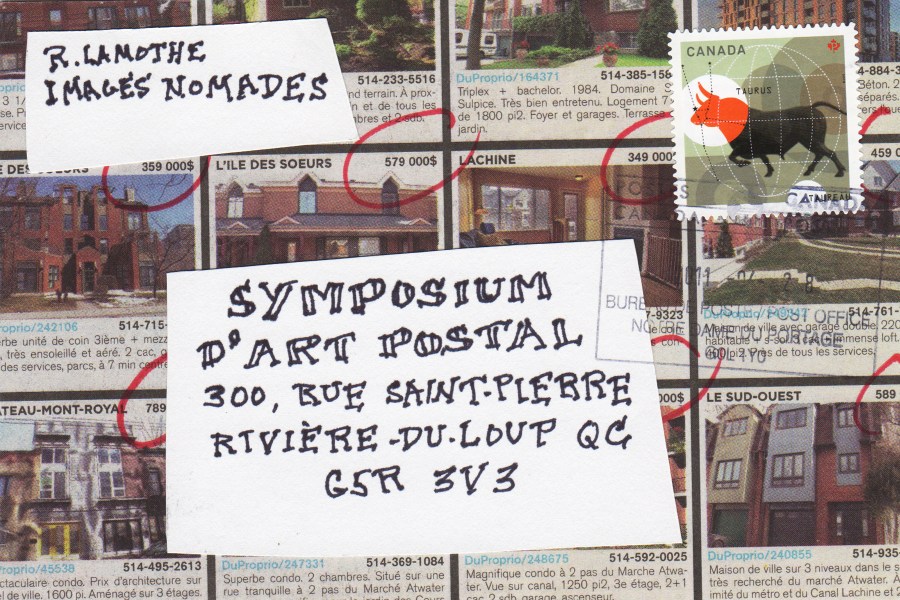 R. LAMOTHE
IMAGES NOMADES
514-233-5516
nd terrain. À prox-
n et de tous les
bres et 2 sdb.
DuProprio/164371
514-385-158
Triplex + bachelor. 1984. Domaine S
Sulpice. Très bien entretenu. Logement 7
de 1800 pi2. Foyer et garages. Terrasse
jardin.
CANADA
P
TAURUS
TAUREAU
359 000$
L'ILE DES SOEURS
579 000$
LACHINE
349 000
459 0
POSTES
CANADA
DuProprio/242106
514-715-
rbe unité de coin 3ième + mezz
, très ensoleillé et aéré. 2 cac, g
des services, parcs, à 7 min centre
SYMPOSIUM
D'ART POSTAL
300, RUE SAINT-PIERRE
RIVIÈRE-DU-LOUP QC
G5R 3V3
7-9323
514-761-
Maison de ville avec garage double. 220
immense loft.
Près de tous les services.
POST OFFICE
NOTRE DAME DU PORTAGE
G0L 1Y0
ATEAU-MONT-ROYAL
789
000$
LE SUD-OUEST
589
DuProprio/45538
514-495-2613
ctaculaire condo. Prix d'architecture sur
el de ville. 1600 pi. Aménagé sur 3 étages.
DuProprio/247331
514-369-1084
Superbe condo. 2 chambres. Situé sur une
rue tranquille à 2 pas du Marché Atwater
DuProprio/248675
514-592-0025
Magnifique condo à 2 pas du Marché Atwa-
ter. Vue sur canal, 1250 pi2, 3e étage, 2+1
cac, 2 sdb, garage, ascenseur.
DuProprio/240855
514-935-
Maison de ville sur 3 niveaux dans le s
très recherché du marché Atwater. À
imité du métro et du Canal Lachine et 2